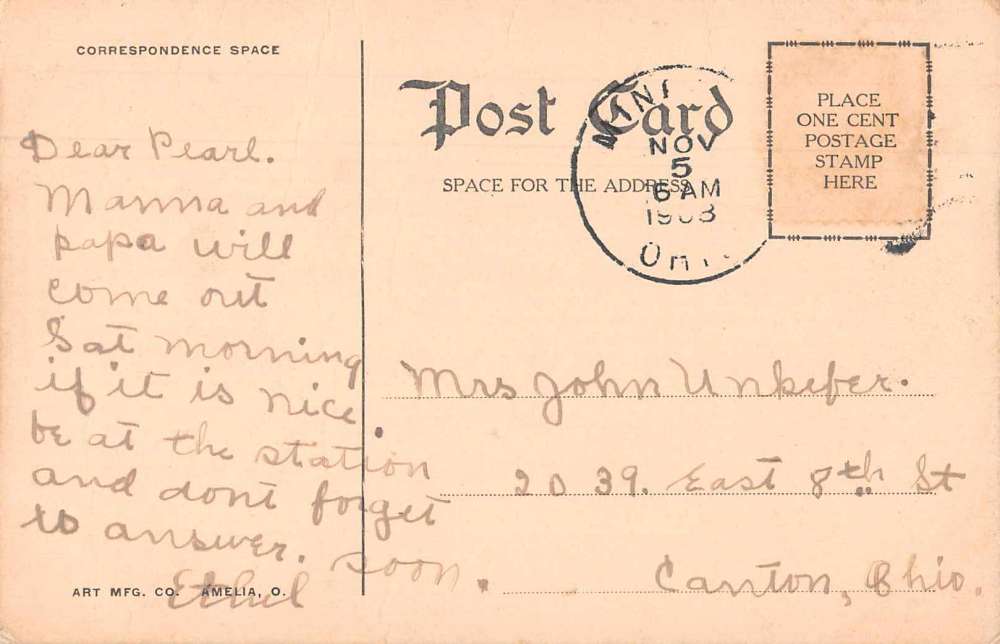 CORRESPONDENCE SPACE
Dear Pearl.
Mamma and
papa will
come out
Sat morning
if it is nice.
be at the station
and dont forget
to answer. soon.
Ethel
ART MFG. CO. AMELIA, O.
Post Card
SPACE FOR THE ADDRESS
NOV
5
6 AM
PLACE
ONE CENT
POSTAGE
STAMP
HERE
Mrs John Unkefer.
2039. East 8th St
Canton, Ohio.